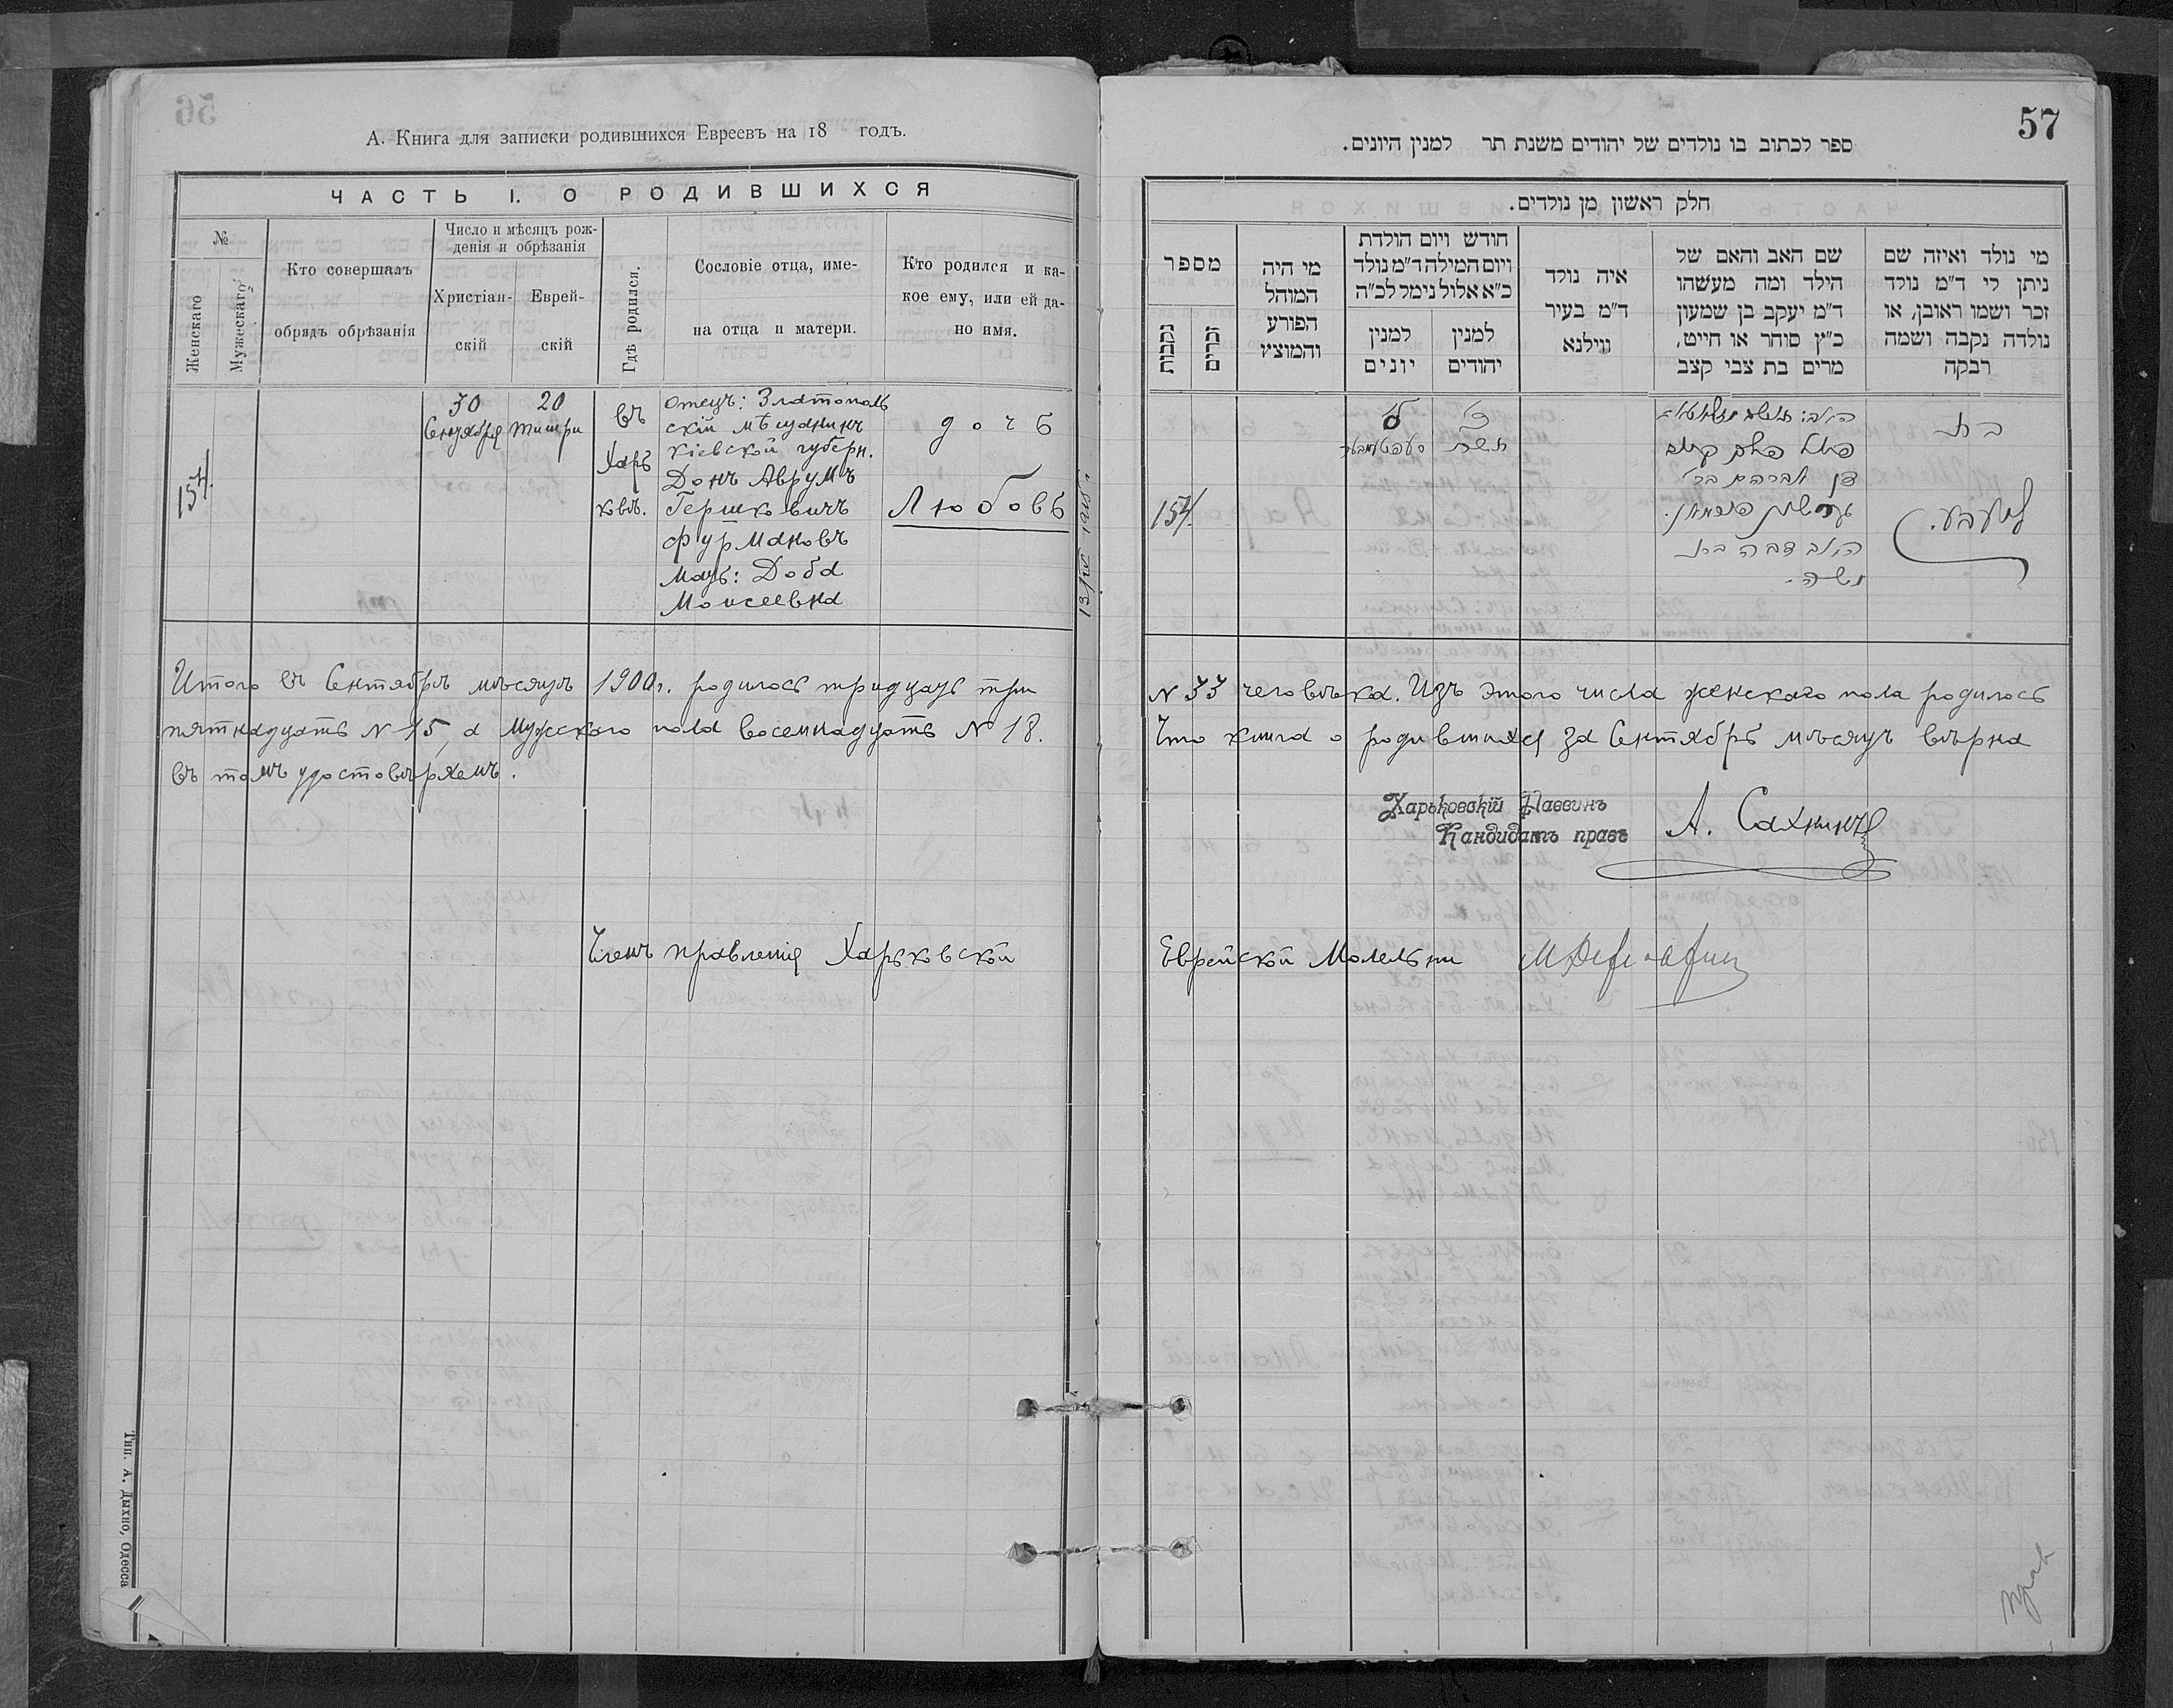 А. Книга для записки родившихся Евреевъ на 18 годъ.
ЧАСТЬ I. О РОДИВШИХСЯ
№
Женскаго
Мужескаго
Кто совершалъ
обрядъ обрѣзанія
Число и мѣсяцъ рож-
денія и обрѣзанія
Христіан-
скій
Еврей-
скій
Гдѣ родился.
Сословіе отца, име-
на отца и матери.
Кто родился и ка-
кое ему, или ей да-
но имя.
154.
30
Сентября
20
Тишри
въ
Харь
ковѣ.
Отецъ: Златополь
скій мѣщанинъ
Кіевской губерн.
Донъ Аврумъ
Гершковичъ
Фурмановъ
Мать: Доба
Моисеевна
дочь
Любовь
Итого въ Сентябрѣ мѣсяцѣ 1900 г. родилось тридцать три
пятнадцать № 15, а мужскаго пола восемнадцать № 18.
въ томъ удостовѣряемъ.
Членъ правленія Харьковской
Тип. А. Дыхно, Одесса
57
ספר לכתוב בו נולדים של יהודים משנת תר למנין היונים.
חלק ראשון מן נולדים.
מספר
נקבות
זכרים
מי היה
המוהל
הפורע
והמוצץ
חודש ויום הולדת
ויום המילה ד"מ נולד
כ"א אלול נימל לכ"ה
למנין
יונים
למנין
יהודים
איה נולד
ד"מ בעיר
ווילנא
שם האב והאם של
הילד ומה מעשהו
ד"מ יעקב בן שמעון
כ"ץ סוחר או חייט,
מרים בת צבי קצב
מי נולד ואיזה שם
ניתן לי ד"מ נולד
זכר ושמו ראובן, או
נולדה נקבה ושמה
רבקה
154.
ל
סעפטעמבער
כ'
תשרי
דן אברהם בר'
בת
№ 33 человѣка. Изъ этого числа женскаго пола родилось
Что книга о родившихся за Сентябрь мѣсяцъ вѣрна
Харьковскій Раввинъ
Кандидатъ правъ
А. Сахнинъ
Еврейской Молельни